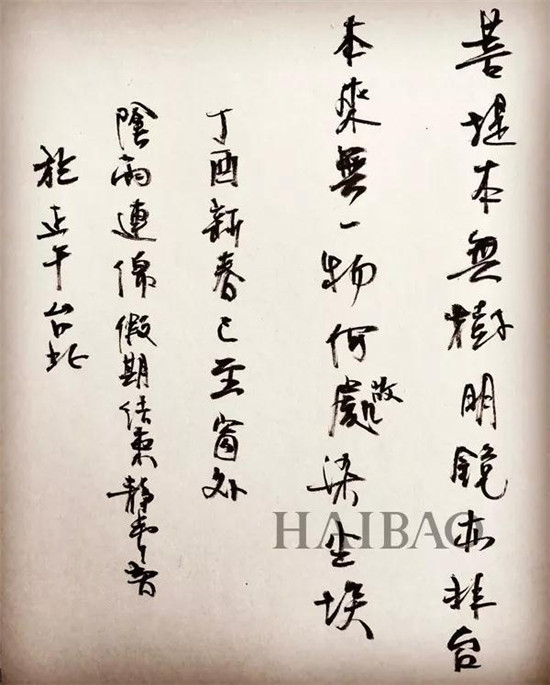 菩提本無樹明鏡亦非台
本來無一物何處改染尘埃
丁酉新春已至窗外
陰雨連綿假期结束静
於正午台北
HAIBAO